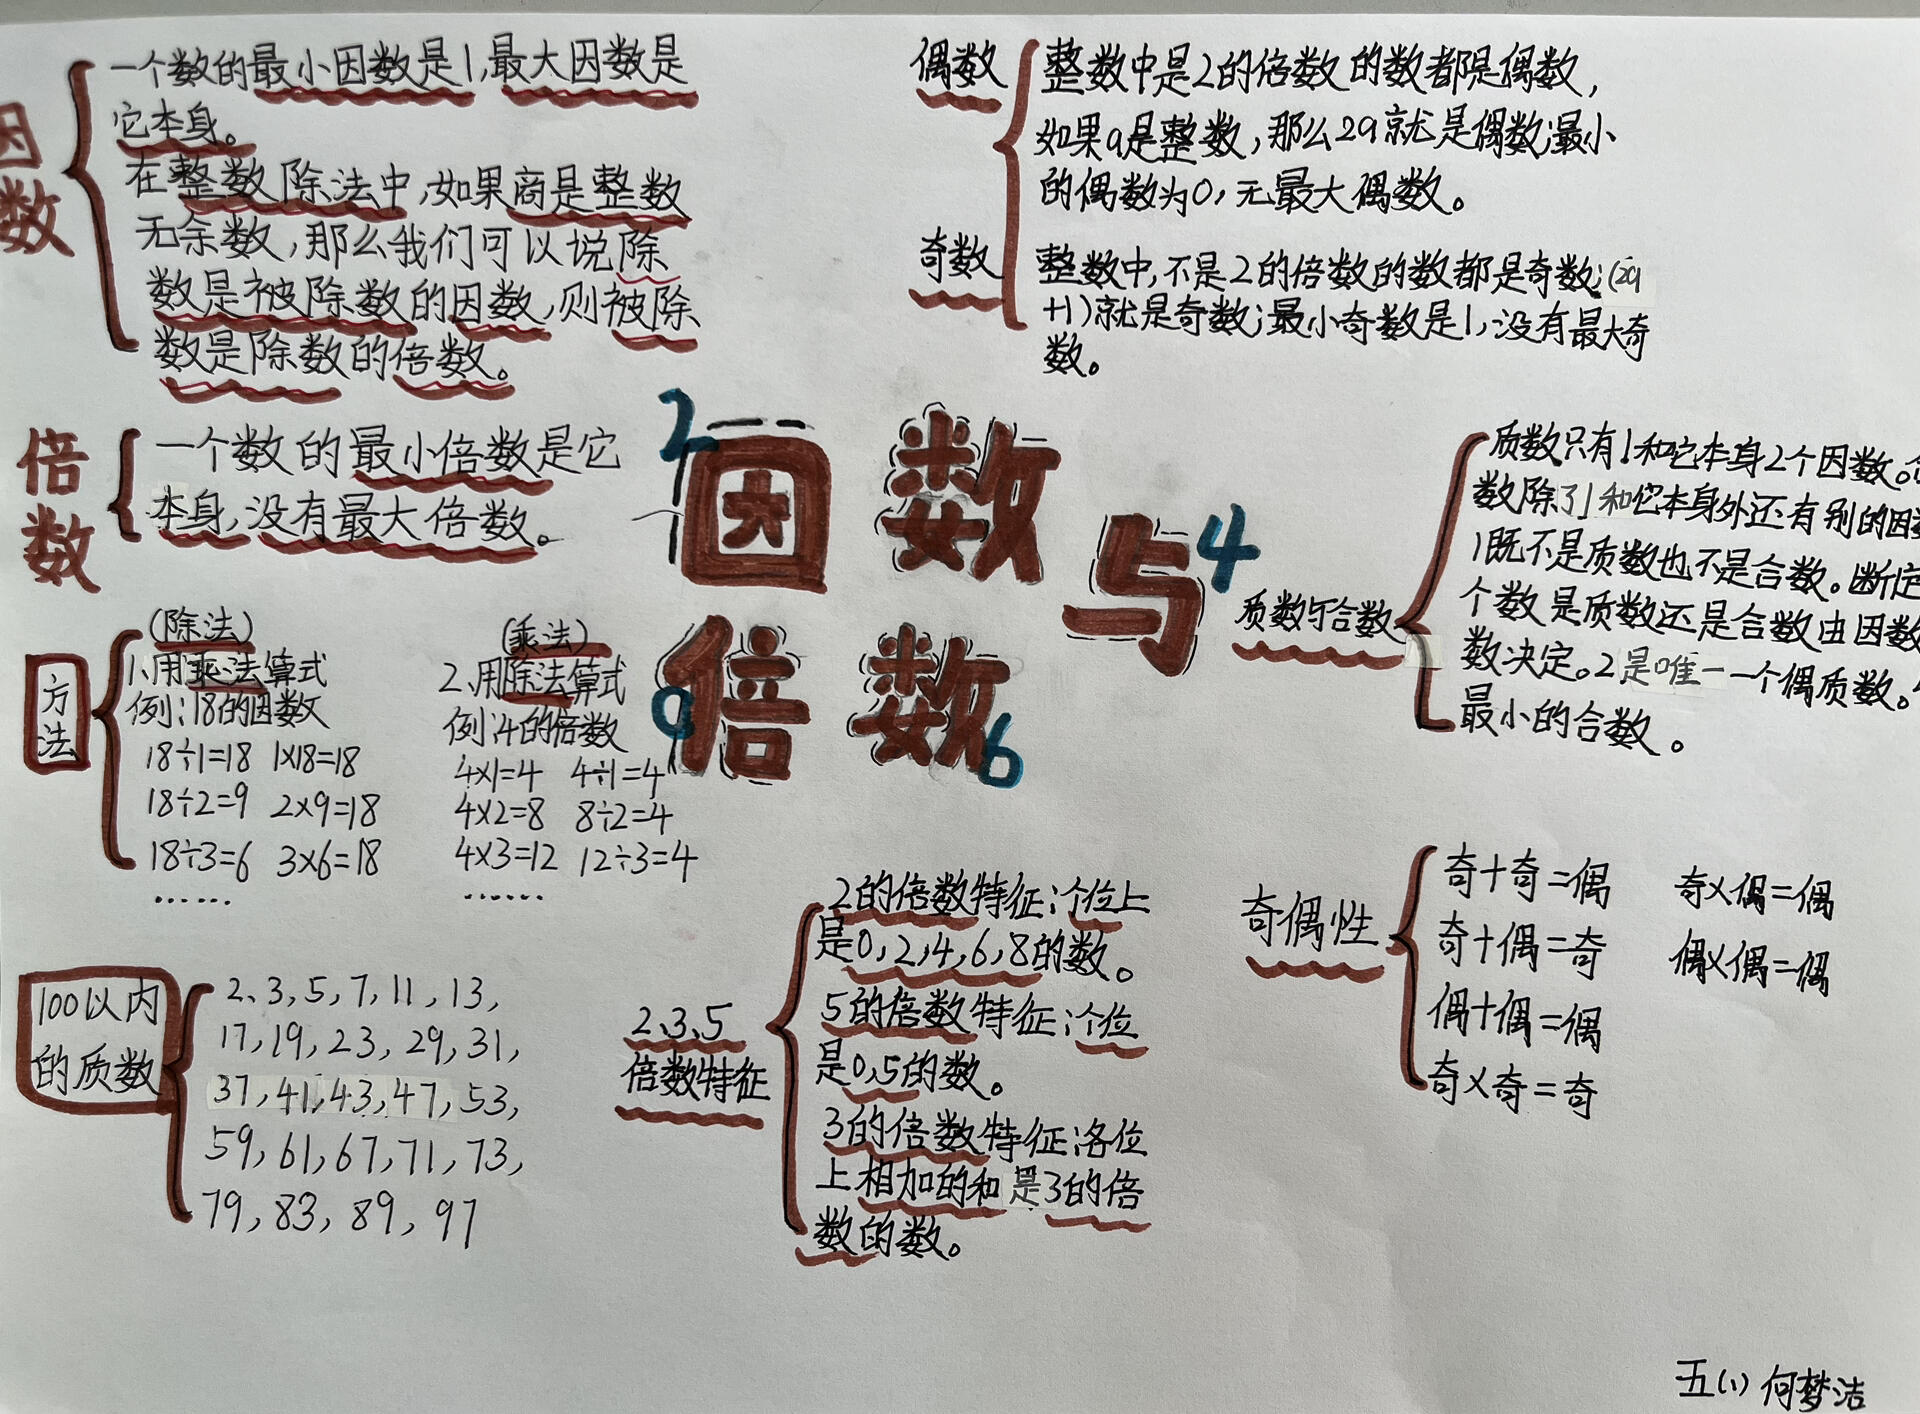 因数
一个数的最小因数是1,最大因数是
它本身。
在整数除法中,如果商是整数
无余数,那么我们可以说除
数是被除数的因数,则被除
数是除数的倍数。
倍数
一个数的最小倍数是它
本身,没有最大倍数。
方法
(除法)
1.用乘法算式
例:18的因数
18÷1=18 1×18=18
18÷2=9 2×9=18
18÷3=6 3×6=18
……
(乘法)
2.用除法算式
例:4的倍数
4×1=4 4÷1=4
4×2=8 8÷2=4
4×3=12 12÷3=4
……
100以内
的质数
2、3,5,7,11,13,
17,19,23,29,31,
37,41,43,47,53,
59,61,67,71,73,
79,83,89,97
2
因数
与
4
倍数
0
6
2、3、5
倍数特征
2的倍数特征:个位上
是0,2,4,6,8的数。
5的倍数特征:个位
是0,5的数。
3的倍数特征:各位
上相加的和是3的倍
数的数。
偶数
整数中是2的倍数的数都是偶数,
如果a是整数,那么2a就是偶数;最小
的偶数为0,无最大偶数。
奇数
整数中,不是2的倍数的数都是奇数;(2a
+1)就是奇数;最小奇数是1,没有最大奇
数。
质数与合数
质数只有1和它本身2个因数。合
数除了1和它本身外还有别的因数
1既不是质数也不是合数。断定
个数是质数还是合数由因数
数决定。2是唯一一个偶质数。
最小的合数。
奇偶性
奇+奇=偶 奇×偶=偶
奇+偶=奇 偶×偶=偶
偶+偶=偶
奇×奇=奇
五(1) 何梦洁